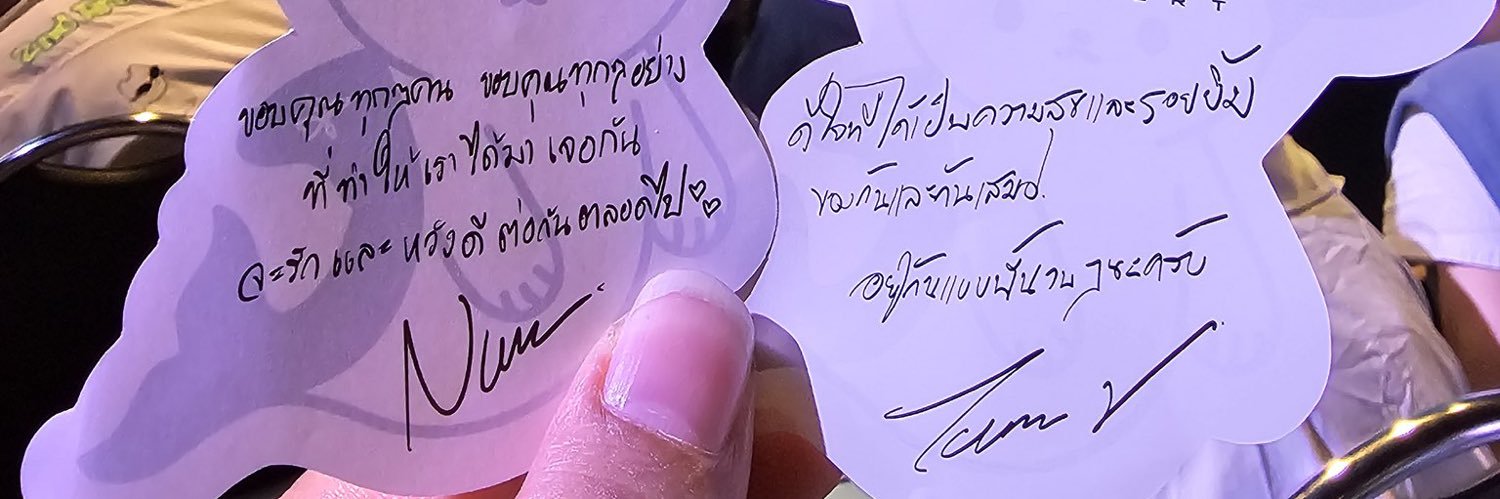 ขอบคุณทุกๆคน ขอบคุณทุกๆอย่าง
ที่ทำให้เราได้มาเจอกัน
จะรักและหวังดีต่อกันตลอดไป ♡♡
ดีใจที่ได้เป็นความสุขและรอยยิ้ม
ของกันและกันเสมอ.
อยู่กันแบบนี้นานๆนะครับ